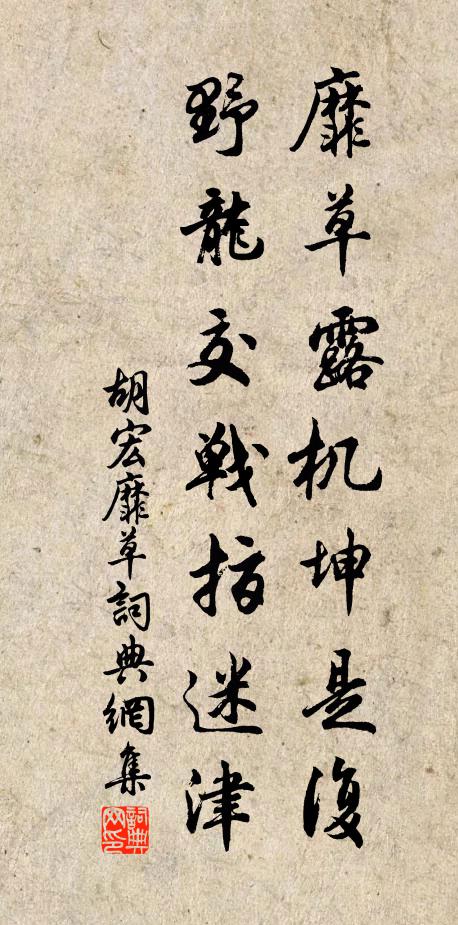 靡草露机坤是復
野龍交戰指迷津
胡宏靡草詞典網集
詞典
网印